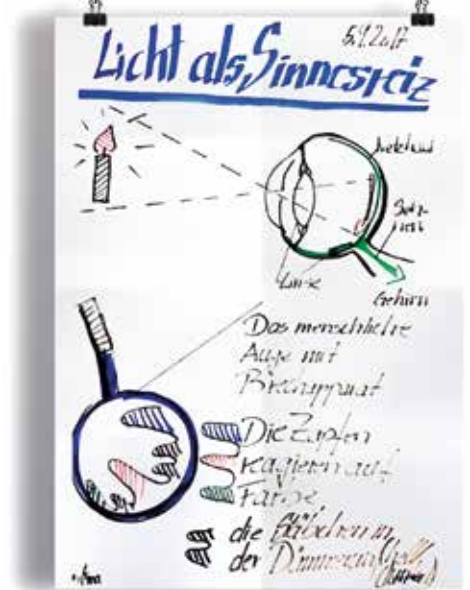 5.9.2017
Licht als Sinnesreiz
Netzhaut
Linse
Gehirn
Das menschliche
Auge mit
Brechapparat
Die Zapfen
reagieren auf
Farbe
die Stäbchen in
der Dämmerung